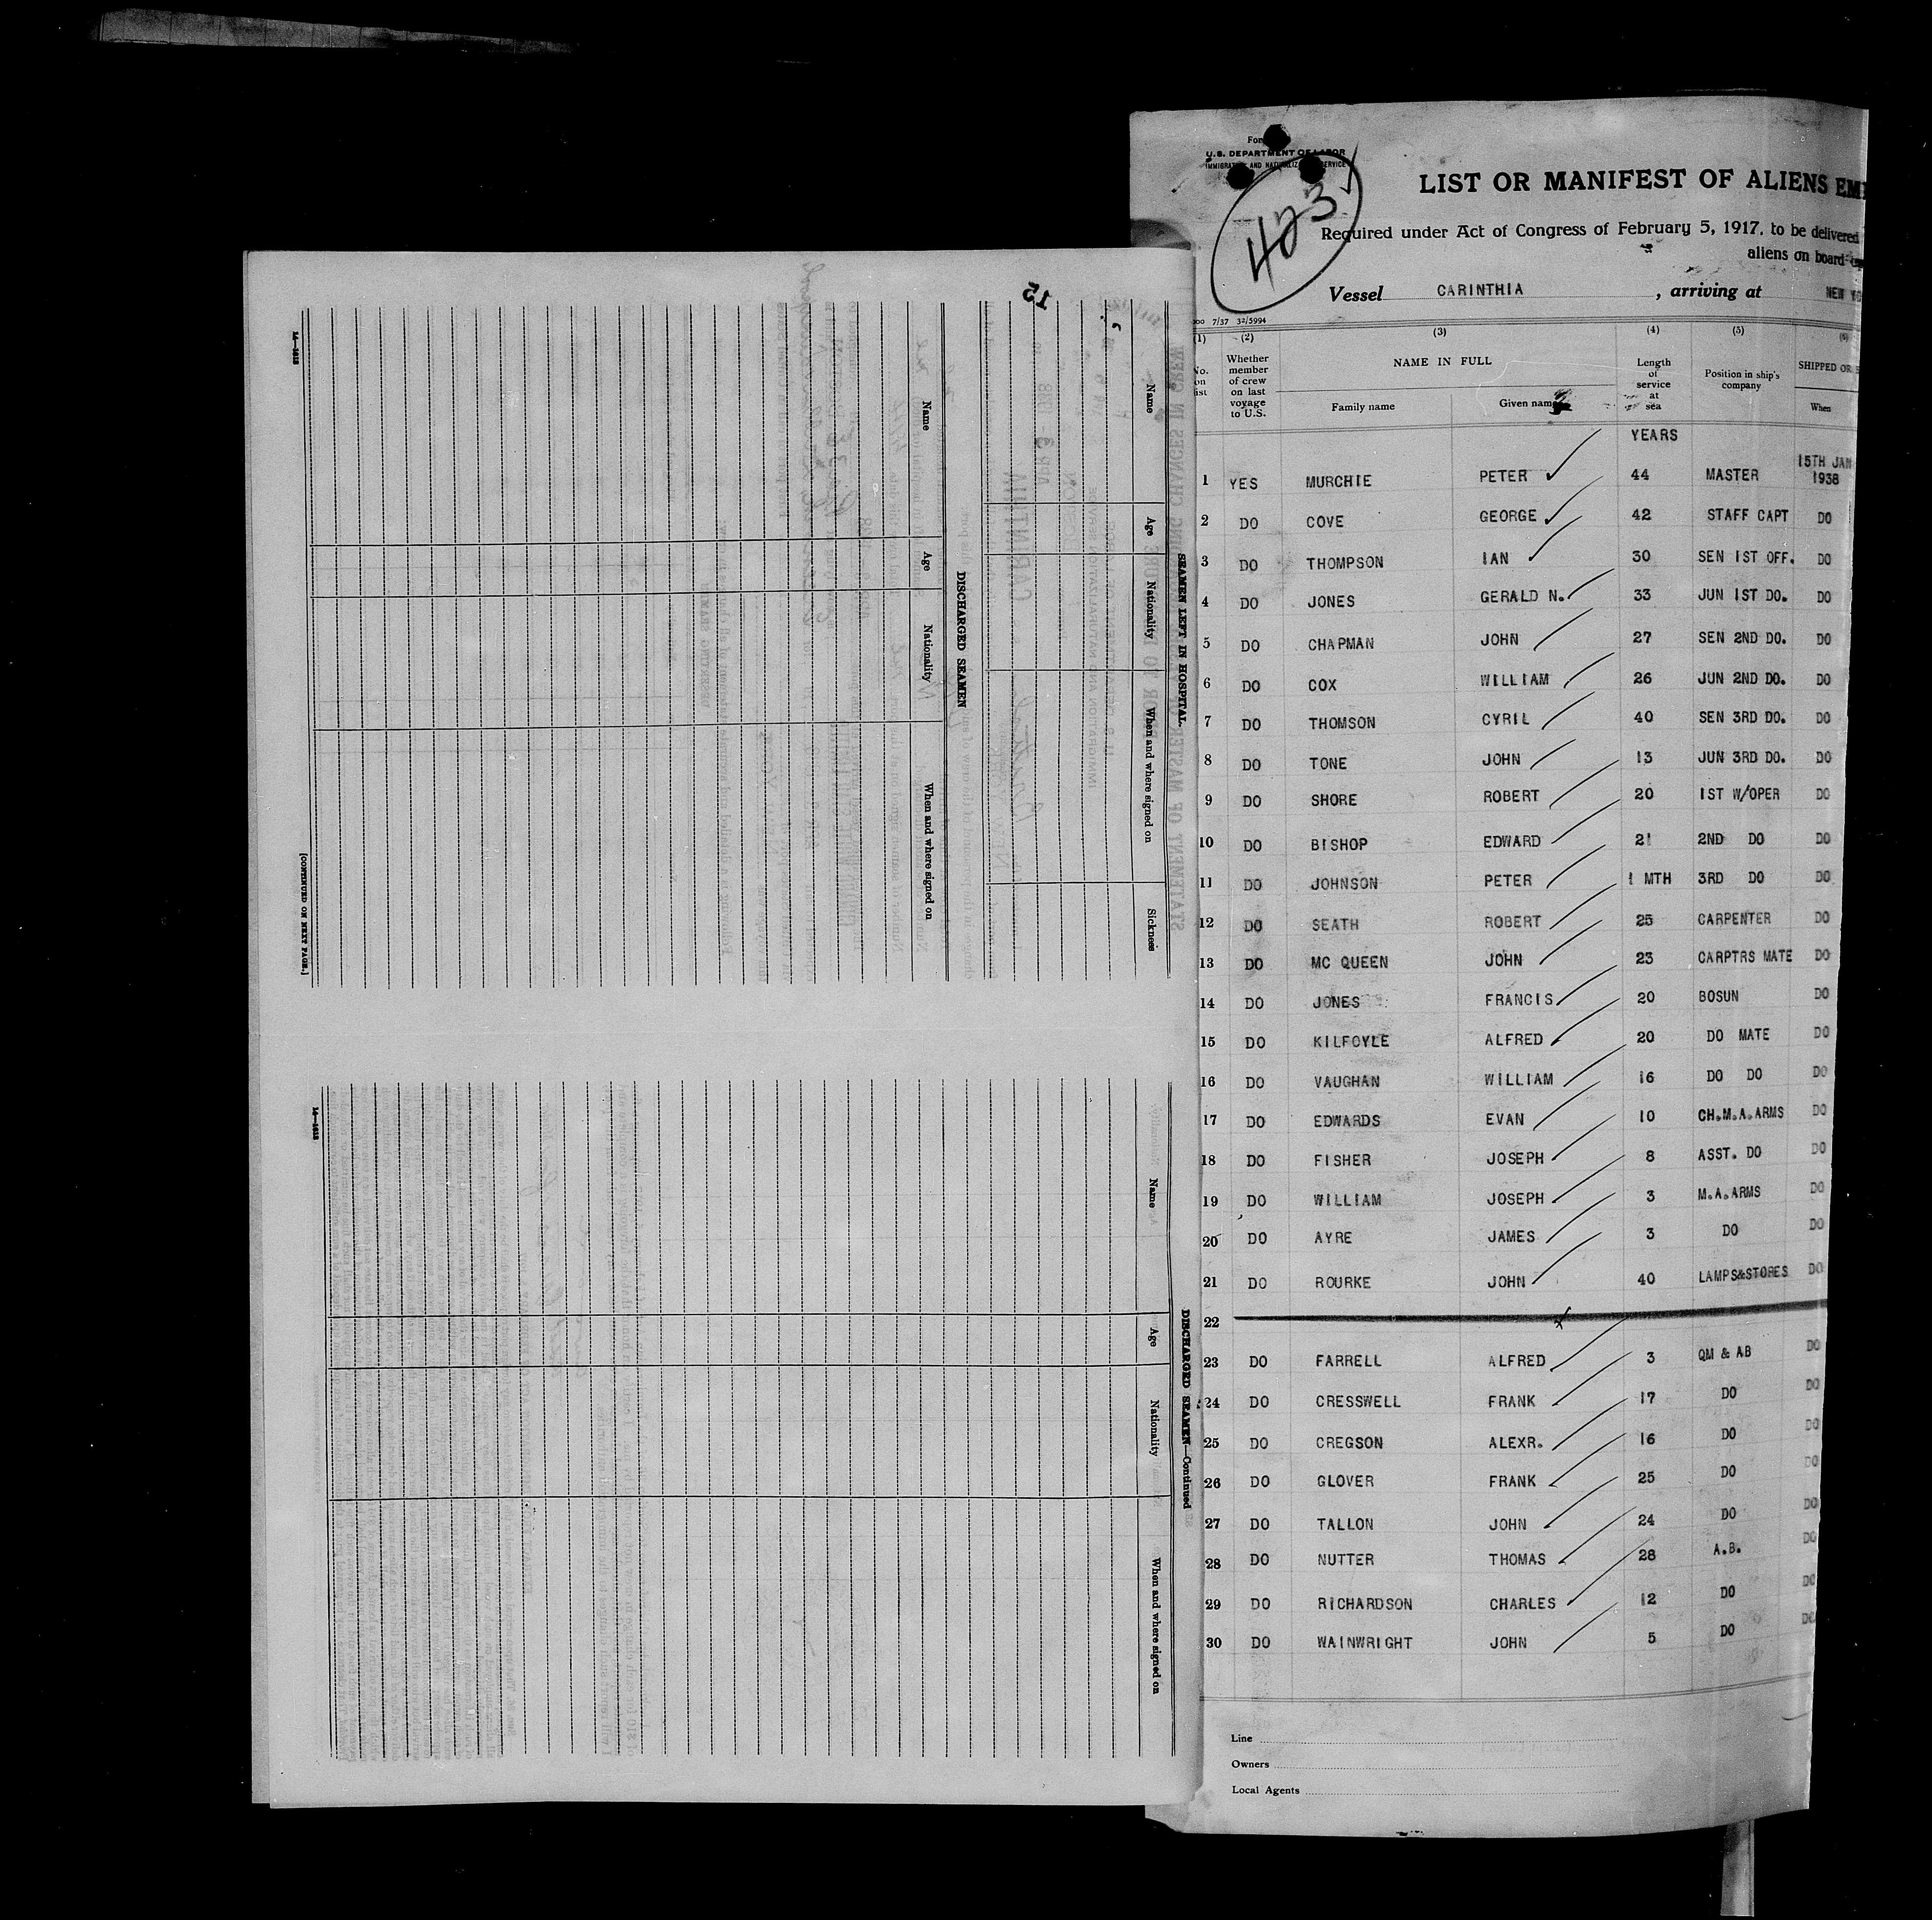 For
U.S. DEPARTMENT OF LABOR
IMMIGRATION AND NATURALIZATION SERVICE
423
LIST OR MANIFEST OF ALIENS EM
Required under Act of Congress of February 5, 1917, to be delivered
aliens on board
Vessel CARINTHIA, arriving at NEW YO
7/37 32/5994
(1) (2) (3) (4) (5) (6)
No. on list Whether member of crew on last voyage to U.S. NAME IN FULL Length of service at sea Position in ship's company SHIPPED OR
Family name Given name When
YEARS
1 YES MURCHIE PETER 44 MASTER 15TH JAN 1938
2 DO COVE GEORGE 42 STAFF CAPT DO
3 DO THOMPSON IAN 30 SEN 1ST OFF. DO
4 DO JONES GERALD N. 33 JUN 1ST DO. DO
5 DO CHAPMAN JOHN 27 SEN 2ND DO. DO
6 DO COX WILLIAM 26 JUN 2ND DO. DO
7 DO THOMSON CYRIL 40 SEN 3RD DO. DO
8 DO TONE JOHN 13 JUN 3RD DO. DO
9 DO SHORE ROBERT 20 1ST W/OPER DO
10 DO BISHOP EDWARD 21 2ND DO DO
11 DO JOHNSON PETER 1 MTH 3RD DO DO
12 DO SEATH ROBERT 25 CARPENTER DO
13 DO MC QUEEN JOHN 23 CARPTRS MATE DO
14 DO JONES FRANCIS 20 BOSUN DO
15 DO KILFOYLE ALFRED 20 DO MATE DO
16 DO VAUGHAN WILLIAM 16 DO DO DO
17 DO EDWARDS EVAN 10 CH.M.A.ARMS DO
18 DO FISHER JOSEPH 8 ASST. DO DO
19 DO WILLIAM JOSEPH 3 M.A.ARMS DO
20 DO AYRE JAMES 3 DO DO
21 DO ROURKE JOHN 40 LAMPS&STORES DO
22
23 DO FARRELL ALFRED 3 QM & AB DO
24 DO CRESSWELL FRANK 17 DO DO
25 DO CREGSON ALEXR. 16 DO DO
26 DO GLOVER FRANK 25 DO DO
27 DO TALLON JOHN 24 DO DO
28 DO NUTTER THOMAS 28 A.B. DO
29 DO RICHARDSON CHARLES 12 DO DO
30 DO WAINWRIGHT JOHN 5 DO DO
Line
Owners
Local Agents
15
SEAMEN LEFT IN HOSPITAL.
Name Age Nationality When and where signed on Sickness
DISCHARGED SEAMEN
Name Age Nationality When and where signed on
[CONTINUED ON NEXT PAGE.]
14—1613
DISCHARGED SEAMEN—Continued
Name Age Nationality When and where signed on
14—1613